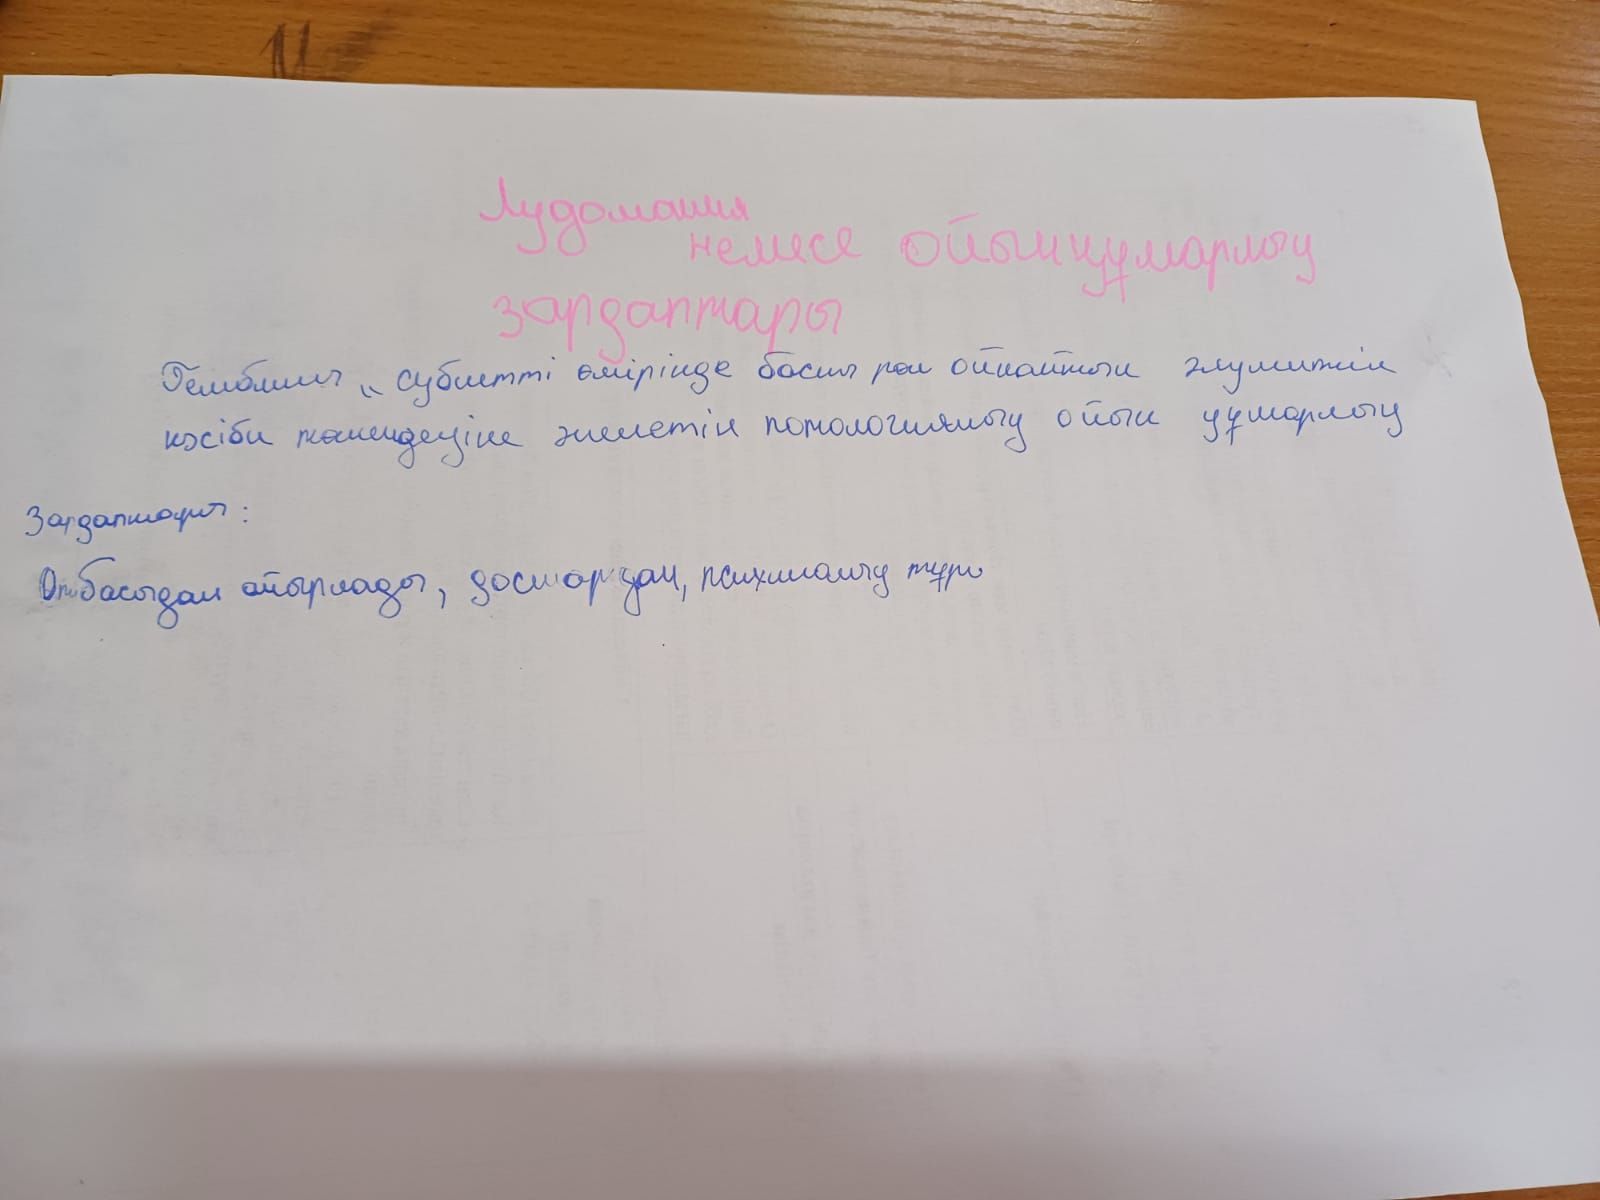 Лудомания
немесе ойынқұмарлық
зардаптары
Гемблинг „ субъетті өмірінде басты рөл ойнайтын әлуметтік
кәсіби төмендеуіне әкелетін потологиялық ойын құмарлық
Зардаптары:
Отбасыдан айырлады, достардан, психикалық тұрғ